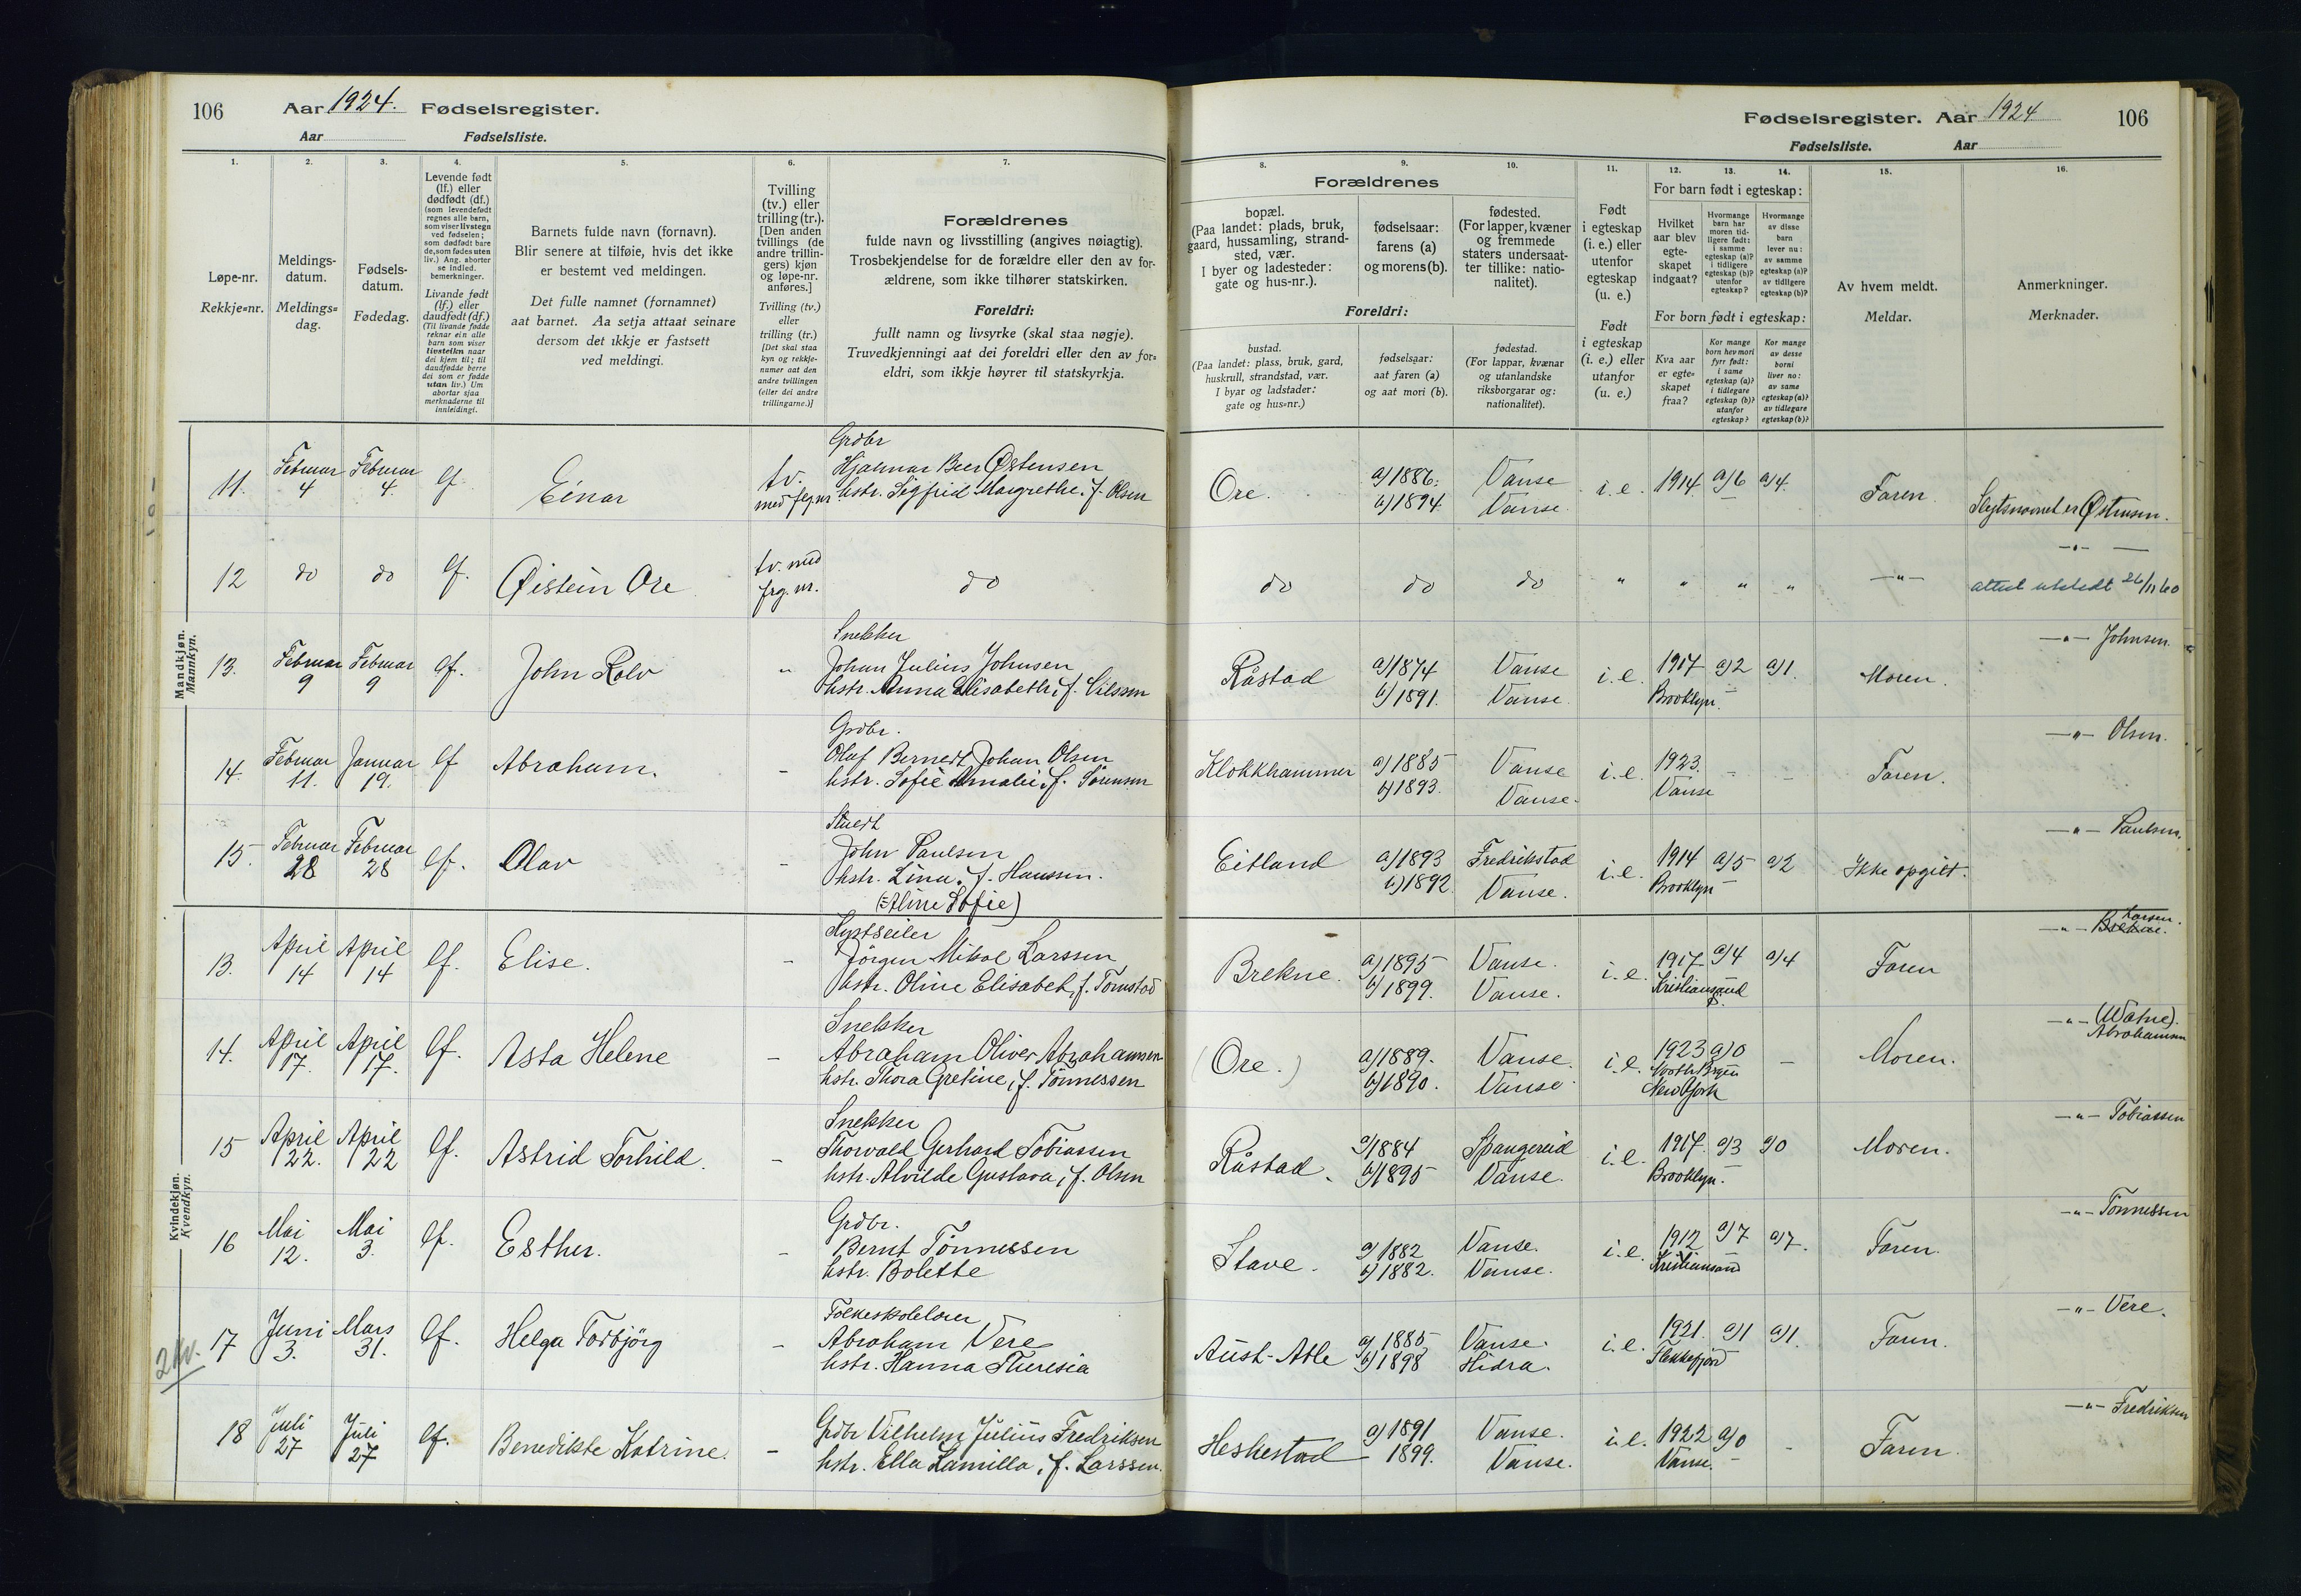 106 Aar 1924. Fødselsregister.
Aar Fødselsliste.
Fødselsregister. Aar 1924 106
Fødselsliste. Aar
1. 2. 3. 4. 5. 6. 7.
Løpe-nr.
Rekkje=nr.
Meldings-
datum.
Meldings=
dag.
Fødsels-
datum.
Fødedag.
Levende født
(lf.) eller
dødfødt (df.)
(som levendefødt
regnes alle barn,
som viser livstegn
ved fødselen;
som dødfødt bare
de, som fødes uten
liv.) Ang. aborter
se indled.
bemerkninger.
Livande født
(lf.) eller
daudfødt (df.)
(Til livande fødde
reknar ein alle
barn som viser
livsteikn naar
dei kjem til; til
daudfødde berre
dei som er fødde
utan liv.) Um
abortar sjaa
merknaderne til
innleidingi.
Barnets fulde navn (fornavn).
Blir senere at tilføie, hvis det ikke
er bestemt ved meldingen.
Det fulle namnet (fornamnet)
aat barnet. Aa setja attaat seinare
dersom det ikkje er fastsett
ved meldingi.
Tvilling
(tv.) eller
trilling (tr.).
[Den anden
tvillings (de
andre trillin-
gers) kjøn
og løpe-nr.
anføres.]
Tvilling (tv.)
eller
trilling (tr.)
[Det skal staa
kyn og rekkje-
numer aat den
andre tvillingen
(eller dei andre
trillingarne.)]
Forældrenes
fulde navn og livsstilling (angives nøiagtig).
Trosbekjendelse for de forældre eller den av for-
ældrene, som ikke tilhører statskirken.
Foreldri:
fullt namn og livsyrke (skal staa nøgje).
Truvedkjenningi aat dei foreldri eller den av for=
eldri, som ikkje høyrer til statskyrkja.
8. 9. 10. 11. 12. 13. 14. 15. 16.
Forældrenes
bopæl.
(Paa landet: plads, bruk,
gaard, hussamling, strand-
sted, vær.
I byer og ladesteder:
gate og hus-nr.).
fødselsaar:
farens (a)
og morens (b).
fødested.
(For lapper, kvæner
og fremmede
staters undersaat-
ter tillike: natio-
nalitet).
Foreldri:
bustad.
(Paa landet: plass, bruk, gard,
huskrull, strandstad, vær.
I byar og ladstader:
gate og hus=nr.)
fødselsaar:
aat faren (a)
og aat mori (b).
fødestad.
(For lappar, kvænar
og utanlandske
riksborgarar og:
nationalitet).
Født
i egteskap
(i. e.) eller
utenfor
egteskap
(u. e.)
Født
i egteskap
(i. e.) eller
utanfor
(u. e.)
For barn født i egteskap:
Hvilket
aar blev
egte-
skapet
indgaat?
Hvormange
barn har
moren tid-
ligere født:
i samme
egteskap (a)?
i tidligere
egteskap (b)?
utenfor
egteskap?
Hvormange
av disse
barn
lever nu:
av samme
egteskap (a)?
av tidligere
egteskap (b)?
For born født i egteskap:
Kva aar
er egte=
skapet
fraa?
Kor mange
born hev mori
fyrr født:
i same
egteskap (a)?
i tidlegare
egteskap (b)?
utanfor
egteskap?
Kor mange
av desse
borni
liver no:
av same
egteskap (a)?
av tidlegare
egteskap (b)?
Av hvem meldt.
Meldar.
Anmerkninger.
Merknader.
Mandkjøn.
Mannkyn.
11. Februar 4 Februar 4. lf. Einar tv. med flg. nr
Grdbr
Hjalmar Beer Østensen
hstr. Sigfrid Margrethe. f. Olsen
Ore. a) 1886. b) 1894. Vanse Vanse. i. e. 1914 a) 6 a) 4. Faren Slegtsnavnet er Østensen.
12 do do lf. Øistein Ore tv. med frg. nr. do
do do do " " " " — " — — " —
attest utstedt 26/11 60
13. Februar 9 Februar 9 lf. John Rolv "
Snekker
Johan Julius Johnsen
hstr. Anna Elisabeth, f. Nilssen
Råstad a) 1874 b) 1891. Vanse Vanse. i. e. 1917 Brooklyn. a) 2 a) 1. Moren. — " — Johnsen.
14. Februar 11. Januar 19. lf Abraham. -
Grdbr.
Olaf Berndt Johan Olsen
hstr. Sofie Amalie, f. Sørensen
Klokkhammer a) 1885 b) 1893. Vanse Vanse. i. e. 1923. Vanse - - Faren. — " — Olsen.
15. Februar 28 Februar 28 lf. Olav -
John Paulsen
hstr. Lina, f. Hanssen.
(= Aline Sofie)
Eitland a) 1893 b) 1892. Fredrikstad Vanse. i. e. 1914 Brooklyn a) 5 a) 2 Ikke opgitt. — " — Paulsen.
Kvindekjøn.
Kvendkyn.
13. April 14 April 14 lf. Elise. -
Kystseiler
Jörgen Mikal Larssen
hstr. Oline Elisabet, f. Tomstad
Brekne. a) 1895 b) 1899. Vanse. Vanse. i. e. 1917 Kristiansand S. a) 4 a) 4 Faren — " — Brekne. Larsen.
14. April 17. April 17. lf. Asta Helene -
Snekker
Abraham Oliver Abrahamsen
hstr. Thora Gretine, f. Tönnessen
(Ore.) a) 1889. b) 1890. Vanse. Vanse. i. e. 1923 North Bergen New York a) 0 - Moren. — " — (Watne). Abrahamsen
15 April 22. April 22 lf. Astrid Torhild. -
Snekker
Thorvald Gerhard Tobiassen
hstr. Alvilde Gustava, f. Olsen
Råstad. a) 1884 b) 1895 Spangereid Vanse. i. e. 1917. Brooklyn. a) 3 a) 0 Moren. — " — Tobiassen
16 Mai 12. Mai 3. lf. Esther. -
Grdbr.
Bernt Tönnessen
hstr. Bolette
Stave. a) 1882 b) 1882. Vanse. Vanse. i. e. 1912 Kristiansand a) 7 a) 7. Faren. — " — Tönnessen
17 Juni 3. Mars 31. lf. Helga Torbjörg -
Folkeskolelærer
Abraham Vere
hstr. Hanna Theresia
Aust-Atle a) 1885 b) 1898 Vanse. Hidra. i. e. 1921. Flekkefjord a) 1 a) 1. Faren. — " — Vere.
2 kv.
18 Juli 27 Juli 27 lf. Benedikte Katrine. -
Grdbr Vilhelm Julius Fredriksen
hstr. Ella Kamilla, f. Larssen.
Heskestad a) 1891 1899. Vanse. Vanse. i. e. 1922 Vanse. a) 0 - Faren. — " — Fredriksen